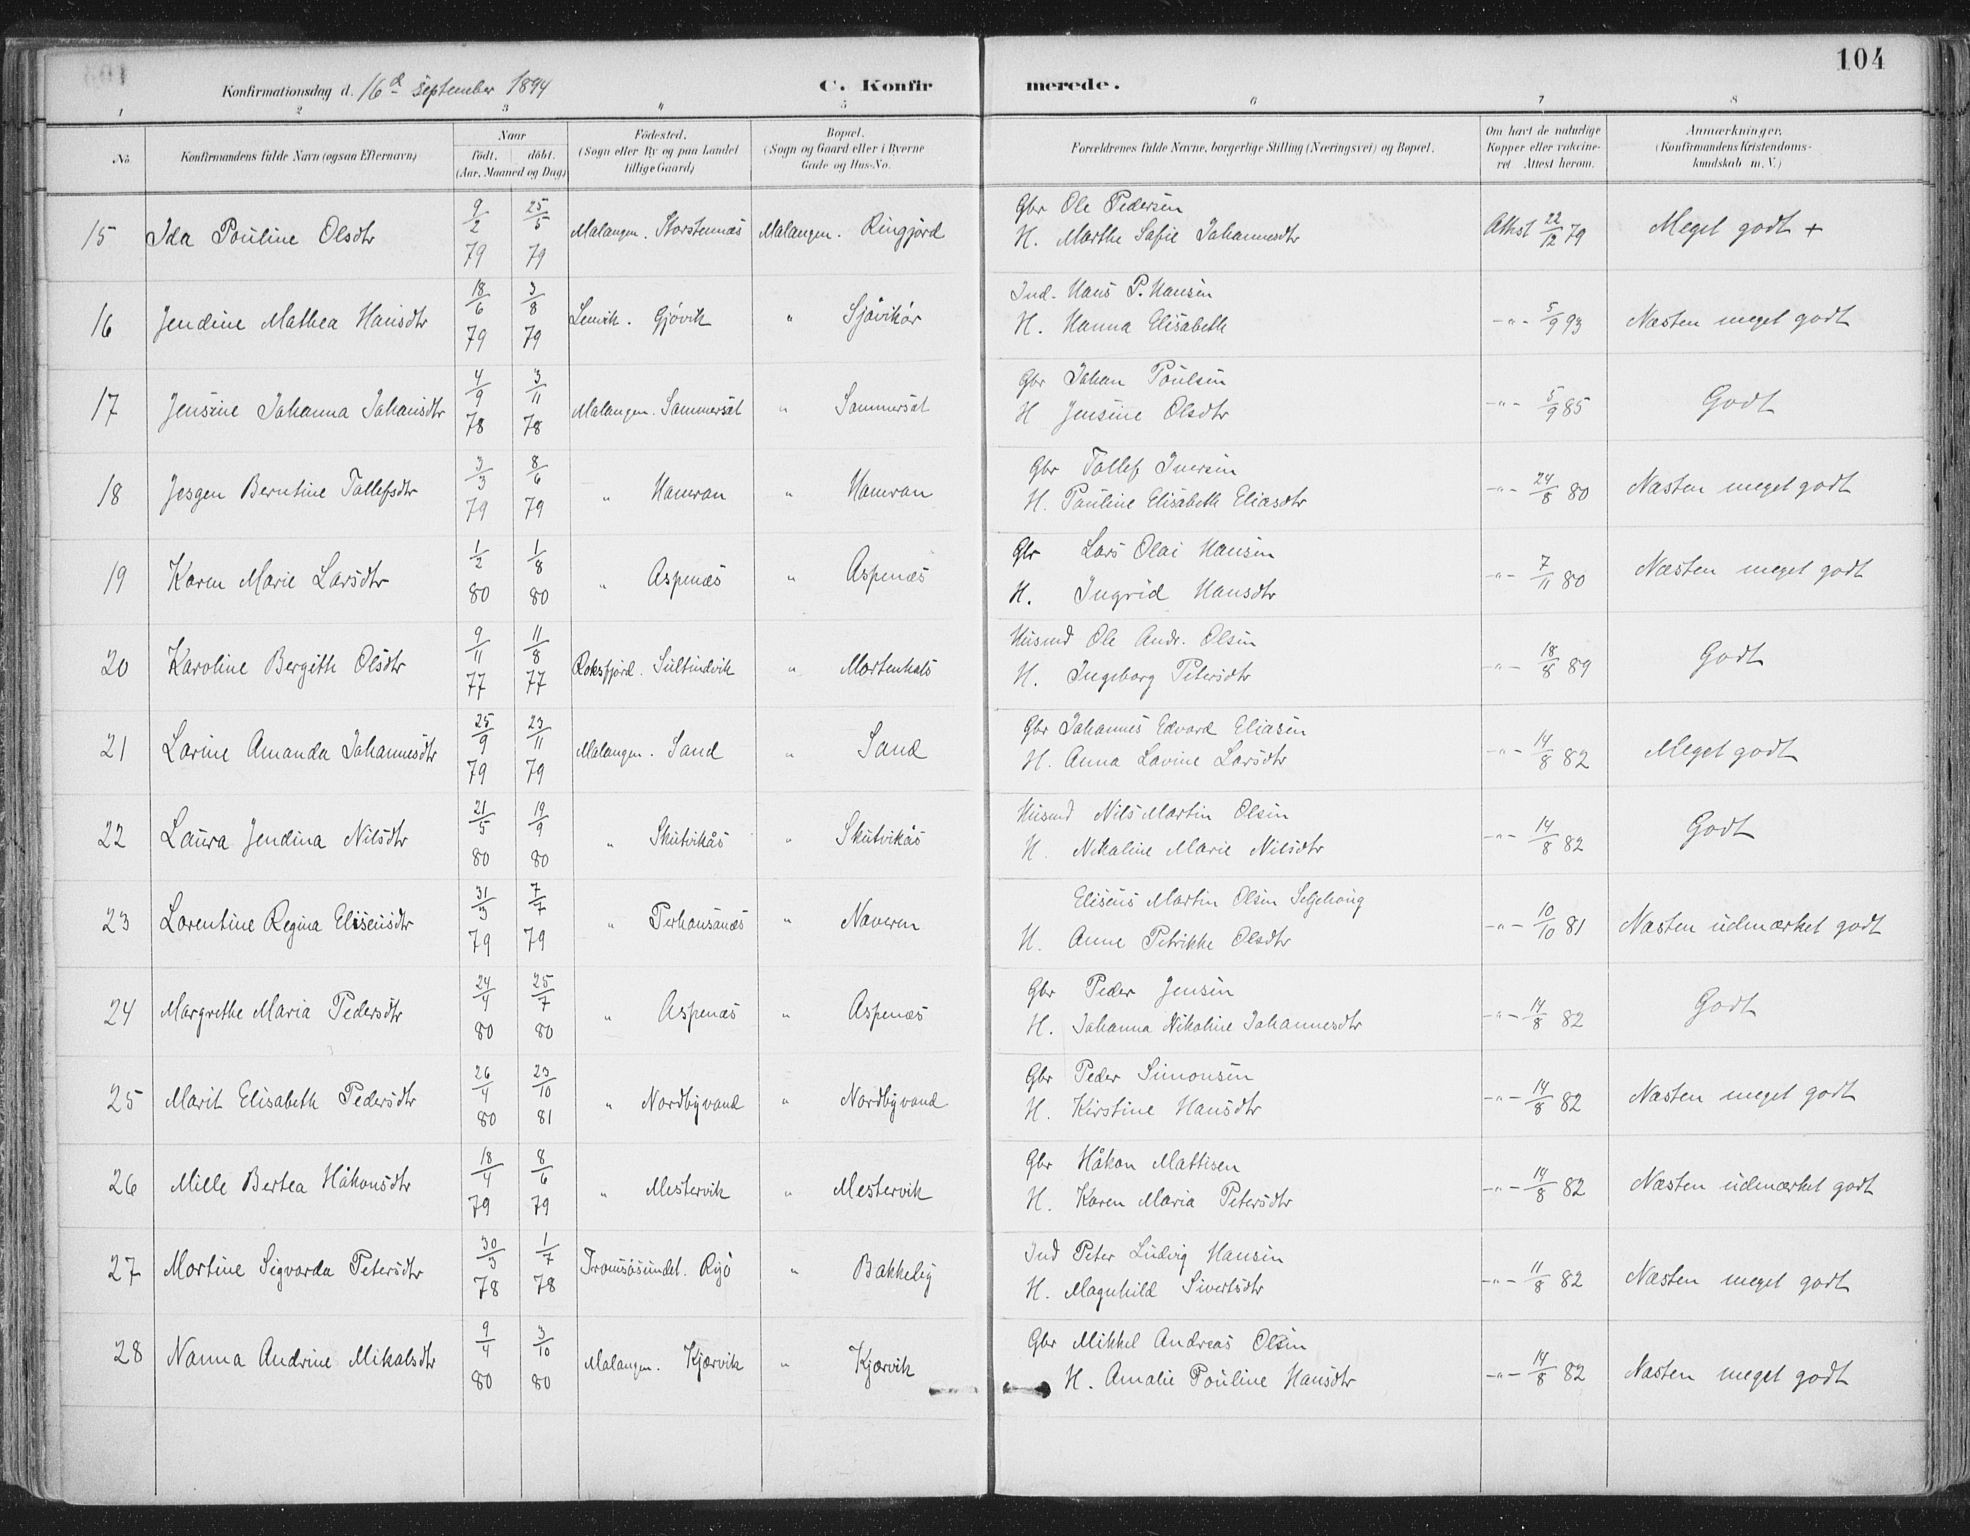 104
Konfirmationsdag d. 16d september 1894
C. Konfirmerede.
1 2 3 4 5 6 7 8
No. Konfirmandens fulde Navn (ogsaa Efternavn) Naar födt. döbt. (Aar, Maaned og Dag) Födested. (Sogn eller By og paa Landet tillige Gaard) Bopæl. (Sogn og Gaard eller i Byerne Gade og Hus-No. Forældrenes fulde Navne, borgerlige Stilling (Næringsvei) og Bopæl. Om havt de naturlige Kopper eller vakcineret Attest herom. Anmærkninger. (Konfirmandens Kristendomskundskab m. V.)
15 Ida Pouline Olsdtr 9/2 79 25/5 79 Malangen. Storstennæs Malangen. Ringjord Gbr Ole Pedersen
H. Marthe Safie Johannesdtr Attest 22/12 79 Meget godt +
16 Jendine Mathea Hansdtr 18/6 79 3/8 79 Lenvik. Gjövik " Sjövikör Ind. Hans P. Hansen
H. Hanna Elisabeth -"- 5/9 93 Næsten meget godt
17 Jensine Johanna Johansdtr 4/9 78 3/11 78 Malangen. Sammersæt " Sammersæt Gbr Johan Poulsen
H Jensine Olsdtr -"- 5/9 85 Godt
18 Jesgen Berntine Tollefsdtr 3/3 79 8/6 79 " Hamran " Hamran Gbr Tollef Iversen
H. Pauline Elisabeth Eliasdtr -"- 24/8 80 Næsten meget godt
19 Karen Marie Larsdtr 1/2 80 1/8 80 " Aspenæs " Aspenæs Gbr Lars Olai Hansen
H. Ingrid Hansdtr -"- 7/11 80 Næsten meget godt
20 Karoline Bergith Olsdtr 9/11 77 11/8 77 Roksfjord. Sultindvik " Mortenhals Husmd Ole Andr. Olsen
H. Ingeborg Petersdtr -"- 18/8 89 Godt
21 Larine Amanda Johannesdtr 25/9 79 23/11 79 Malangen. Sand " Sand Gbr Johannes Edvard Eliasen
H. Anna Lavine Larsdtr -"- 14/8 82 Meget godt
22 Laura Jendina Nilsdtr 21/5 80 19/9 80 " Skutvikås " Skutvikås Husmd Nils Martin Olsen
H. Nikoline Marie Nilsdtr -"- 14/8 82 Godt
23 Lorentine Regina Eliseusdtr 31/3 79 7/7 79 " Perhansanæs " Naveren Eliseus Martin Olsen Seljehoug
H. Anne Petrikke Olsdtr -"- 10/10 81 Næsten udmærket godt
24 Margrethe Maria Pedersdtr 24/4 80 25/7 80 " Aspenæs " Aspenæs Gbr Peder Jensen
H. Johanna Nikoline Johannesdtr -"- 14/8 82 Godt
25 Marit Elisabeth Pedersdtr 26/4 80 23/10 81 " Nordbyvand " Nordbyvand Gbr Peder Simonsen
H. Kirstine Hansdtr -"- 14/8 82 Næsten meget godt
26 Mille Bertea Håkonsdtr 18/4 79 8/6 79 " Mestervik " Mestervik Gbr Håkon Mattisen
H. Karen Maria Petersdtr -"- 14/8 82 Næsten udmærket godt
27 Martine Sigvarda Petersdtr 30/3 78 1/7 78 Tromsösundet. Ryö " Bakkeby Ind Peter Ludvig Hansen
H. Magnhild Sivertsdtr -"- 11/8 82 Næsten meget godt
28 Nanna Andrine Mikalsdtr 9/4 80 3/10 80 Malangen. Kjærvik " Kjærvik Gbr Mikkel Andreas Olsen
H. Amalie Pouline Hansdtr -"- 14/8 82 Næsten meget godt